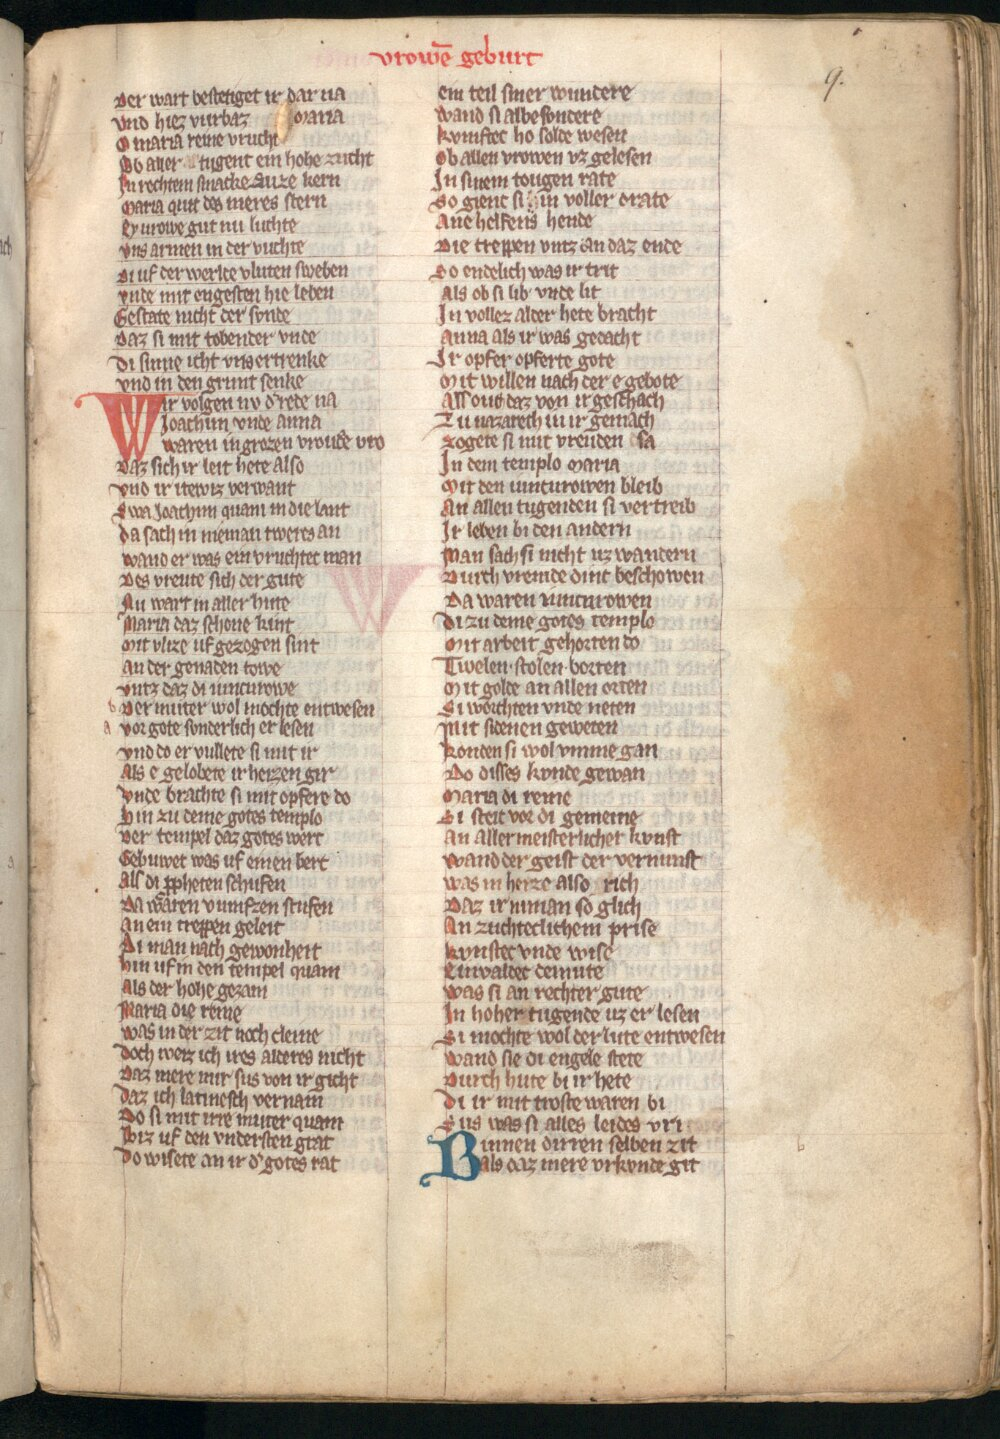 vrowē geburt
9.
Der wart bestetiget ir dar na
Vnd hiez vurbaz Maria
O maria reine vrucht
Ob aller tugent ein hohe zucht
In rechtem smacke suze kern
Maria quit des meres stern
Ey vrowe gut nu luchte
Vns armen in der vuchte
Di uf der werlte vluten sweben
Vnde mit engesten hie leben
Gestate nicht der synde
Daz si mit tobender vnde
Di sinne icht vns ertrenke
Vnd in den grunt senke
Wir volgen nv d'rede na
Joachim vnde anna
waren in grozen vroude vro
Daz sich ir leit hete also
Vnd ir itewiz verwant
Swa Joachim quam in die lant
Da sach in nieman tweres an
Wand er was ein vruchtec man
Des vreute sich der gute
Nu wart in aller hute
Maria daz schone kint
Mit vlize uf gezogen sint
An der genaden towe
Vntz daz di iuncurowe
b Der muter wol mochte entwesen
a Vor gote sonderlich er lesen
Vnd do er vullete si mit ir
Als e gelobete ir herzen gir
Vnde brachte si mit opfere do
Hin zu deme gotes templo
Der tempel daz gotes wert
Gebuwet was uf einen bert
Als di ppheten schufen
Da waren vumfzen stufen
An ein treppen geleit
Di man nach gewonheit
Hin uf in den tempel quam
Als der hohe gezam
Maria die reine
Was in der zit noch cleine
Doch weiz ich ires alderes nicht
Daz mere mir sus von ir gicht
Daz ich latinesch vernam
Do si mit irre muter quam
Biz uf den vndersten grat
Do wisete an ir d' gotes rat
ein teil siner wundere
Wand si albesondere
Kvmftec ho solde wesen
Ob allen vrowen vz gelesen
In sinem tougen rate
So gienc si hin voller drate
Ane helfens hende
Die treppen vntz an daz ende
So endelich was ir trit
Als ob si lib vnde lit
In vollez alder hete bracht
Anna als ir was gedacht
Ir opfer opferte gote
Mit willen nach der e gebote
Alsous daz von ir geschach
Zu nazareth in ir gemach
Zogete si mit vreuden sa
In dem templo Maria
Mit den iuncurowen bleib
An allen tugenden si vertreib
Ir leben bi den andern
Man sach si nicht uz wandern
Durch vremde dinc beschowen
Da waren iuncurowen
Di zu deme gotes templo
Mit arbeit gehorten do
Twelen stolen borten
Mit golde an allen orten
Si worchten vnde neten
Mit sidenen geweten
Konden si wol vmme gan
Do disses kvnde gewan
Maria di reine
Si steit vor di gemeine
An aller meisterlicher kvnst
Wand der geist der vernunst
Was in herze also rich
Daz ir niman so glich
An zuchteclichem prise
Kvnstec vnde wise
Einvaldec demute
Was si an rechter gute
In hoher tugende uz er lesen
Si mochte wol der lute entwesen
Wand sie di engele stete
Durch hute bi ir hete
Di ir mit troste waren bi
Sus was si alles leides vri
Binnen dirren selben zit
als daz mere vrkvnde git